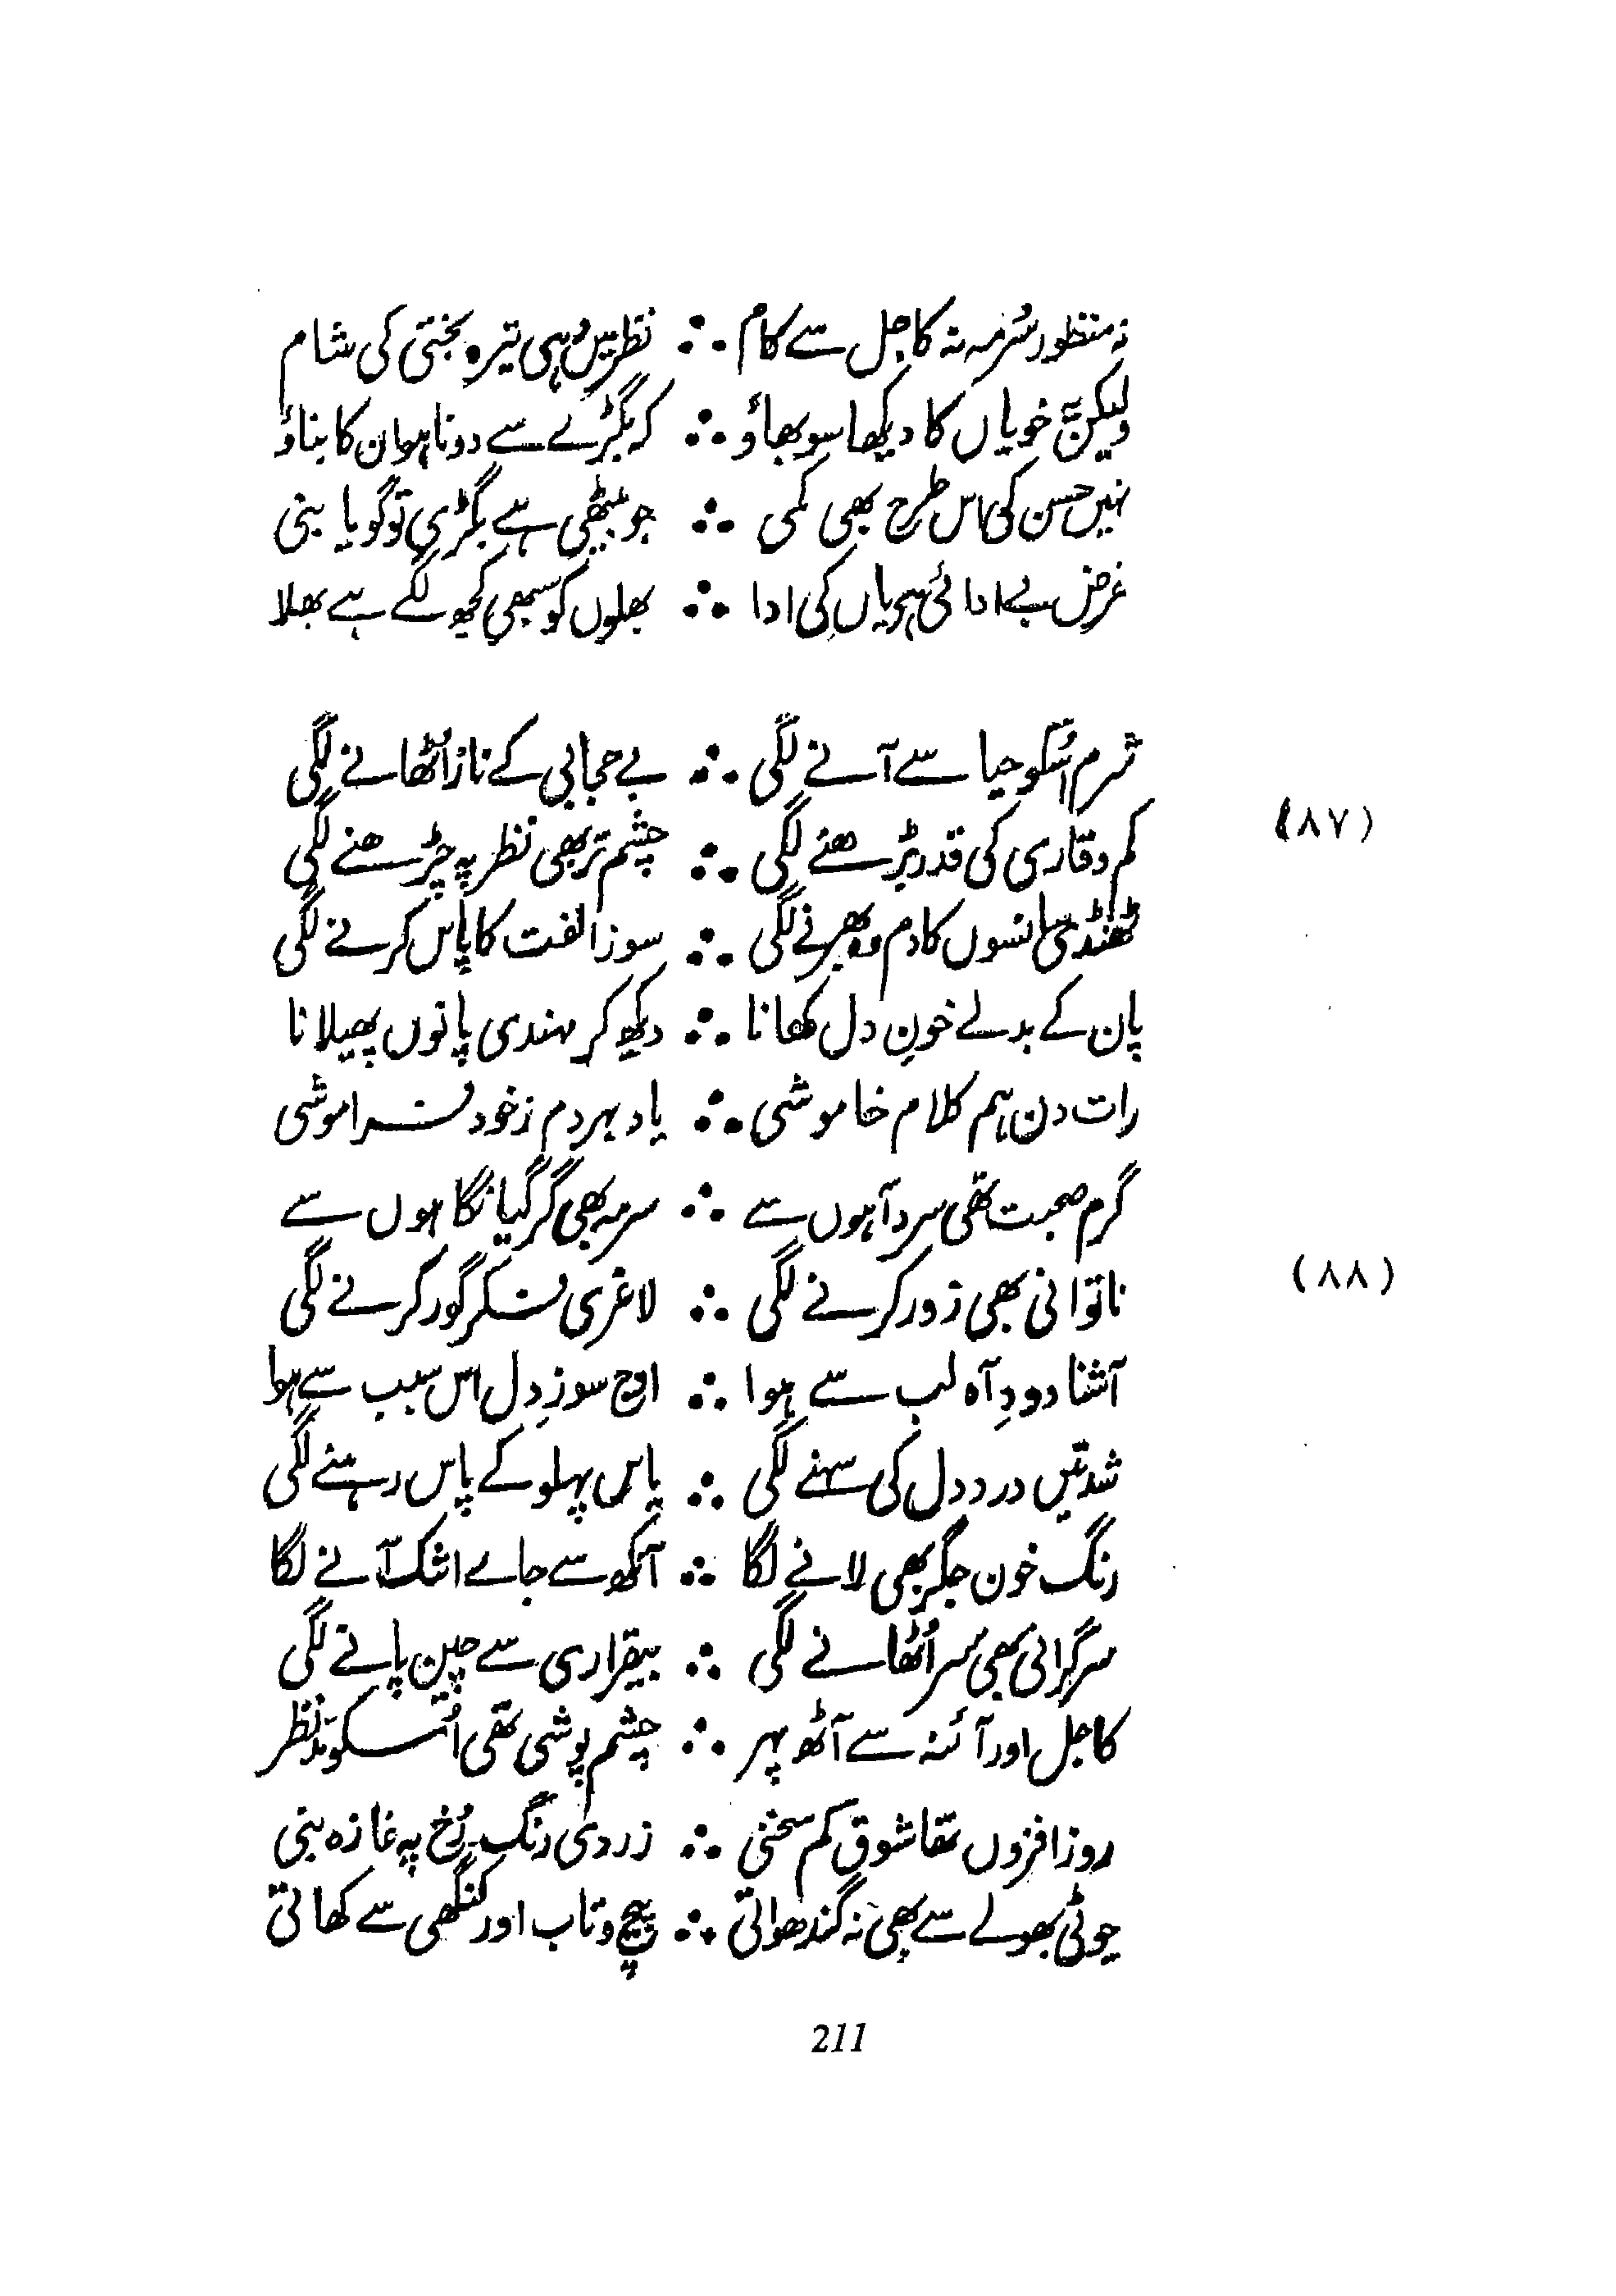 نہ منظور سُرمہ نہ کاجل سے کام ∴ نظر میں وُہی تیرہ بختی کی شام
ولیکن یہ خوباں کا دیکھا سوبھاؤ ∴ کہ بگڑے سے دونا ہو ان کا بناؤ
نہیں حسن کی اس طرح بھی کمی ∴ جو بیٹھی ہے بگڑی تو گویا بنی
غرض بے ادائی ہے یاں کی ادا ∴ بھلوں کو سبھی کچھ لگے ہے بھلا
شرم اُسکو حیا سے آنے لگی ∴ بے حجابی کے ناز اُٹھانے لگی
(۸۷)
کم وقاری کی قدر بڑھنے لگی ∴ چشم تر بھی نظر پہ چڑھنے لگی
ٹھنڈی سانسوں کا دم وہ بھرنے لگی ∴ سوز الفت کا پاس کرنے لگی
پان کے بدلے خونِ دل کھانا ∴ دیکھ کر مہندی پانوں پھیلانا
رات دن ہم کلام خاموشی ∴ یاد ہر دم زخود فراموشی
گرم صحبت تھی سرد آہوں سے ∴ سرمہ بھی گر گیا نگاہوں سے
(۸۸)
ناتوانی بھی زور کرنے لگی ∴ لاغری فکر گور کرنے لگی
آشنا دودِ آہ لب سے ہوا ∴ اوج سوزِ دل اس سبب سے ہوا
شدتیں درد دل کی سہنے لگی ∴ یاس پہلو کے پاس رہنے لگی
رنگ خون جگر بھی لانے لگا ∴ آنکھ سے جاے اشک آنے لگا
سرگرانی بھی سر اُٹھانے لگی ∴ بیقراری سے چین پانے لگی
کاجل اور آئنہ سے آٹھ پہر ∴ چشم پوشی تھی اُسکو مدّنظر
روز افزوں تھا شوق کم سخنی ∴ زردی رنگ رُخ پہ غازہ بنی
چوٹی بھولے سے بھی نہ گندھواتی ∴ پیچ و تاب اور کنگھی سے کھاتی
211